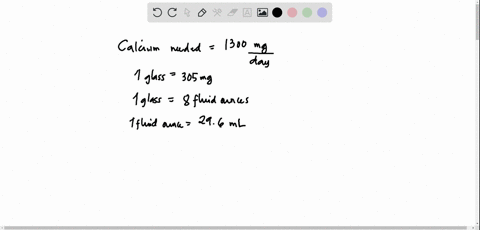 Calcium needed = 1300 mg/day
1 glass = 305 mg
1 glass = 8 fluid ounces
1 fluid ounce = 29.6 mL